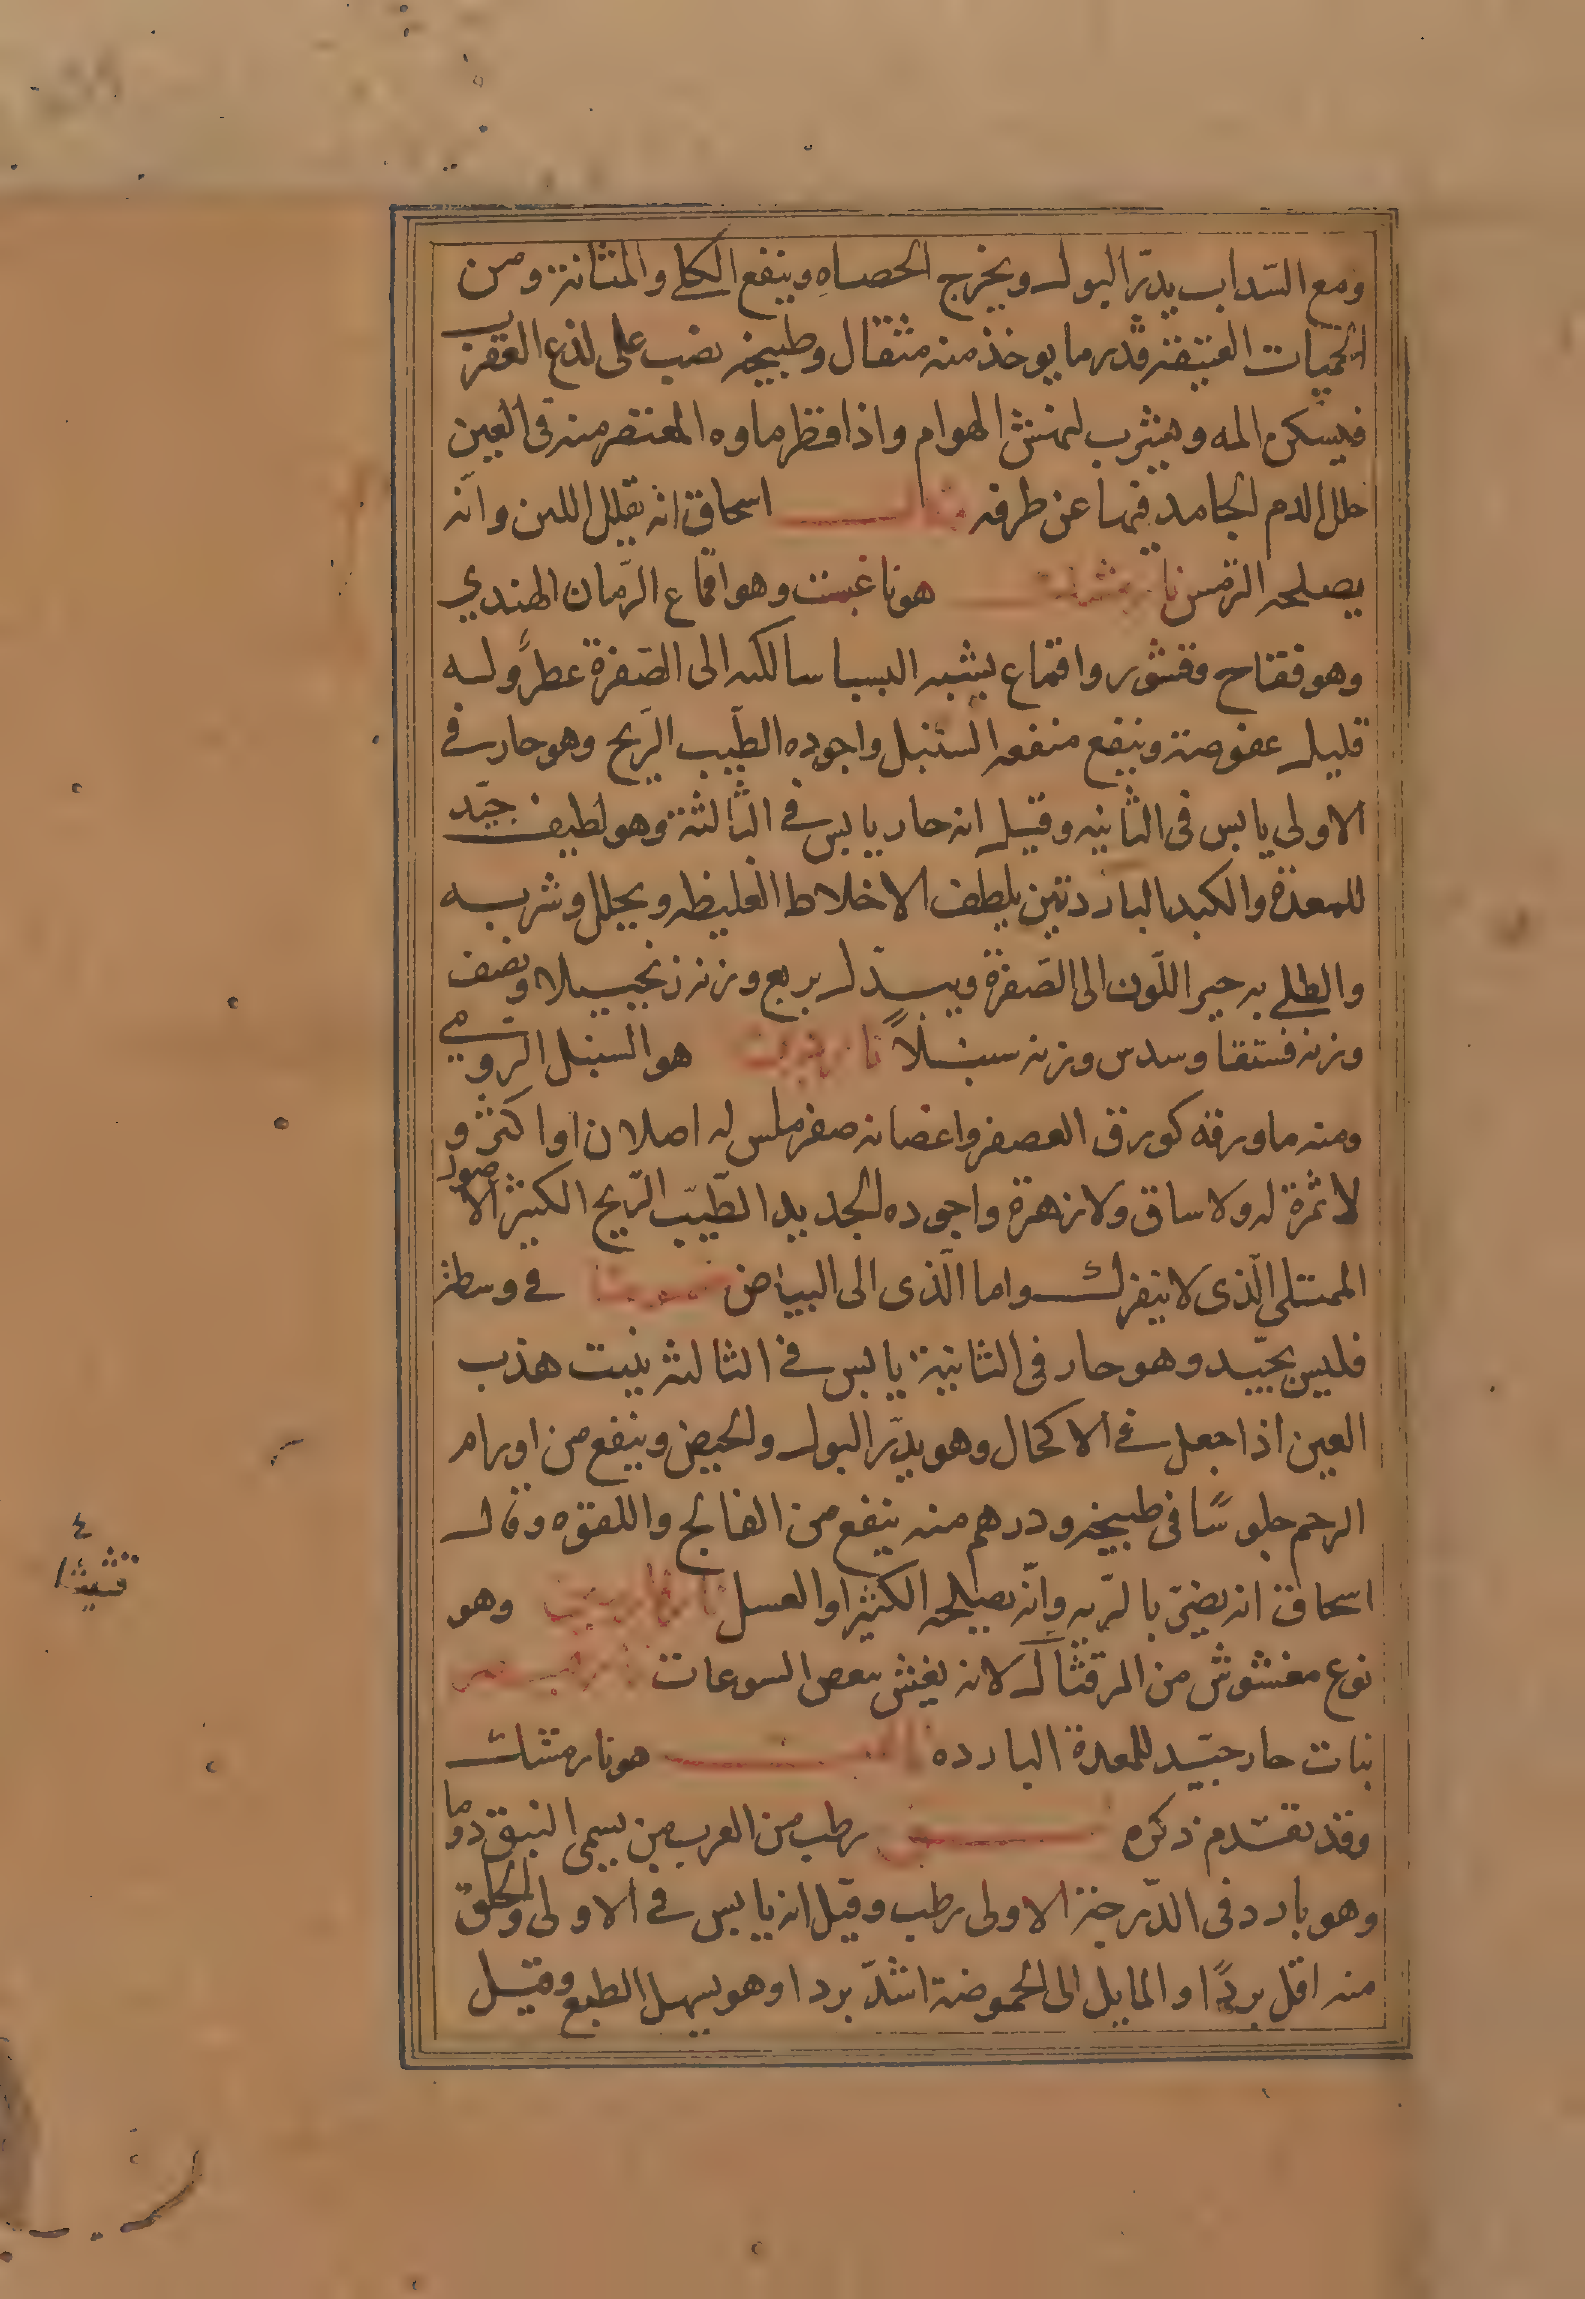 ومع السّداب يدرّ البول ويخرج الحصاه وينفع الكلى والمثانة ومن
الحميات العتيقة وقدر ما يوخذ منه مثقال وطبيخه نصب على لذع العقرب
فيسكن المه ويشرب لنهش الهوام واذا قطر ماوه المعتصر منه في العين
حلل الدم الجامد فيها عن طرفه قال اسحاق انه يقلل اللبن وانّه
يصلحه الترمس نارمشك هو ناغبست وهو اقماع الرّمان الهندي
وهو فقاح وقشور واقماع يشبه البسباسا لكنه الى الصّفرة عطر وله
قليل عفوصة وينفع منفعه السنبل واجوده الطّيب الرّيح وهو حار في
الاولى يابس في الثانيه وقيل انه حار يابس في الثّالثة وهو لطيف جيّد
للمعدة والكبد الباردتين يلطف الاخلاط الغليظه ويحلل وشربه
والطلى به حير اللّون الى الصّفرة ويبدّل بربع وزنه زنجبيلا ونصف
وزنه فستقا وسدس وزنه سنبلاً ناردين هو السنبل الرّومي
ومنه ما ورقه كورق العصفر واغصانه صفر ملس له اصلان او اكثر و
لا ثمرة له ولا ساق ولا زهرة واجوده الجديد الطّيب الرّيح الكثير الاصول
الممتلى الّذى لا يتفرك واما الّذى الى البياض في وسطه
فليس بجيّد وهو حار في الثانية يابس في الثالثه ينبت هذب
العين اذا جعل في الاكحال وهو يدرّ البول والحيض وينفع من اورام
الرحم جلوسًا في طبيخه ودرهم منه ينفع من الفالج واللقوه وقال
اسحاق انه يضرّ بالرّيه وانّه يصلحه الكثيرا والعسل وهو
نوع مغشوش من المرقثا لانه يغش ببعض السوعات
نبات حار جيّد للمعدة البارده ناغبست هو نارمشك
وقد تقدّم ذكره نبق رطب من العرب من يسمى النبق دوما
وهو بارد في الدّرجة الاولى رطب وقيل انه يابس في الاولى والحلو
منه اقل بردًا والمايل الى الحموضة اشدّ بردا وهو يسهل الطبع وقيل
قشيثا